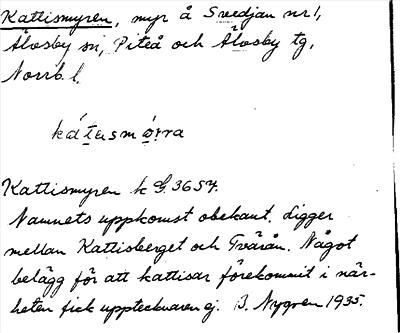 Kattismyren, myr å Svedjan nr 1,
Älvsby sn, Piteå och Älvsby tg,
Norrb. l.
kátɩsmø̀rra
Kattismyren k G. 3654.
Namnets uppkomst obekant. Ligger
mellan Kattisberget och Tvärån. Något
belägg för att kattisar förekommit i när-
heten fick upptecknaren ej. B. Nygren 1935.